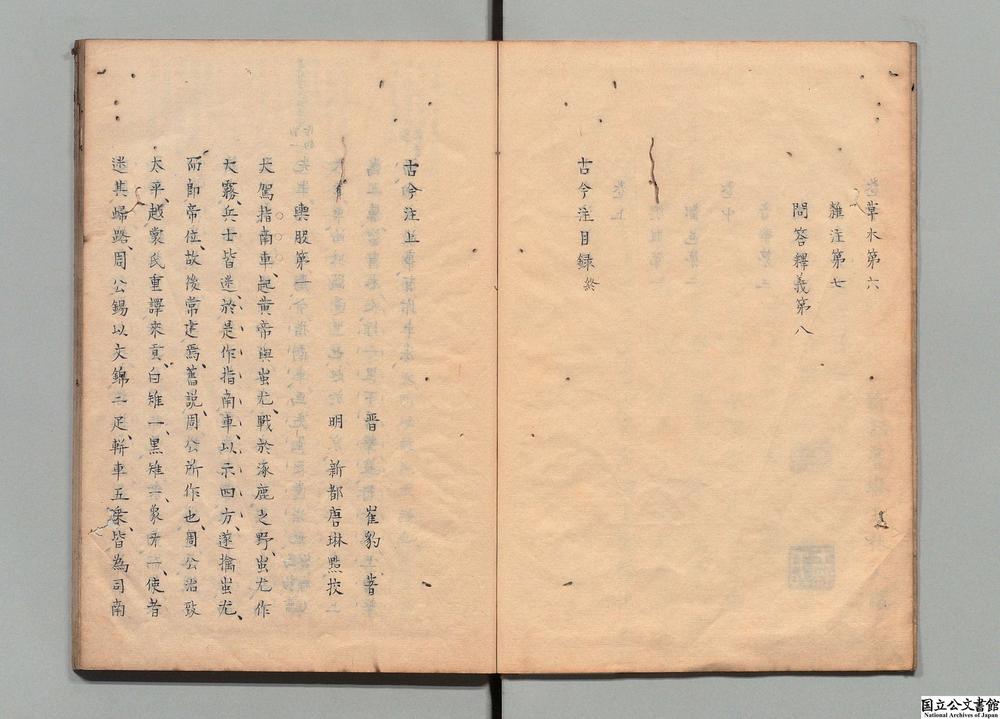 草木第六
雜注第七
問答釋義第八
古今注目録終
古今注上
晋 崔豹 著
明 新都唐琳點挍
輿服第一
大駕指南車起黄帝與蚩尤戰於涿鹿之野蚩尤作
大霧兵士皆迷於是作指南車以示四方遂擒蚩尤
而即帝位故後常建焉舊説周公所作也周公治致
太平越裳氏重譯來貢白雉一黒雉二象牙一使者
迷其歸路周公錫以文錦二疋軿車五乗皆為司南
国立公文書館
National Archives of Japan